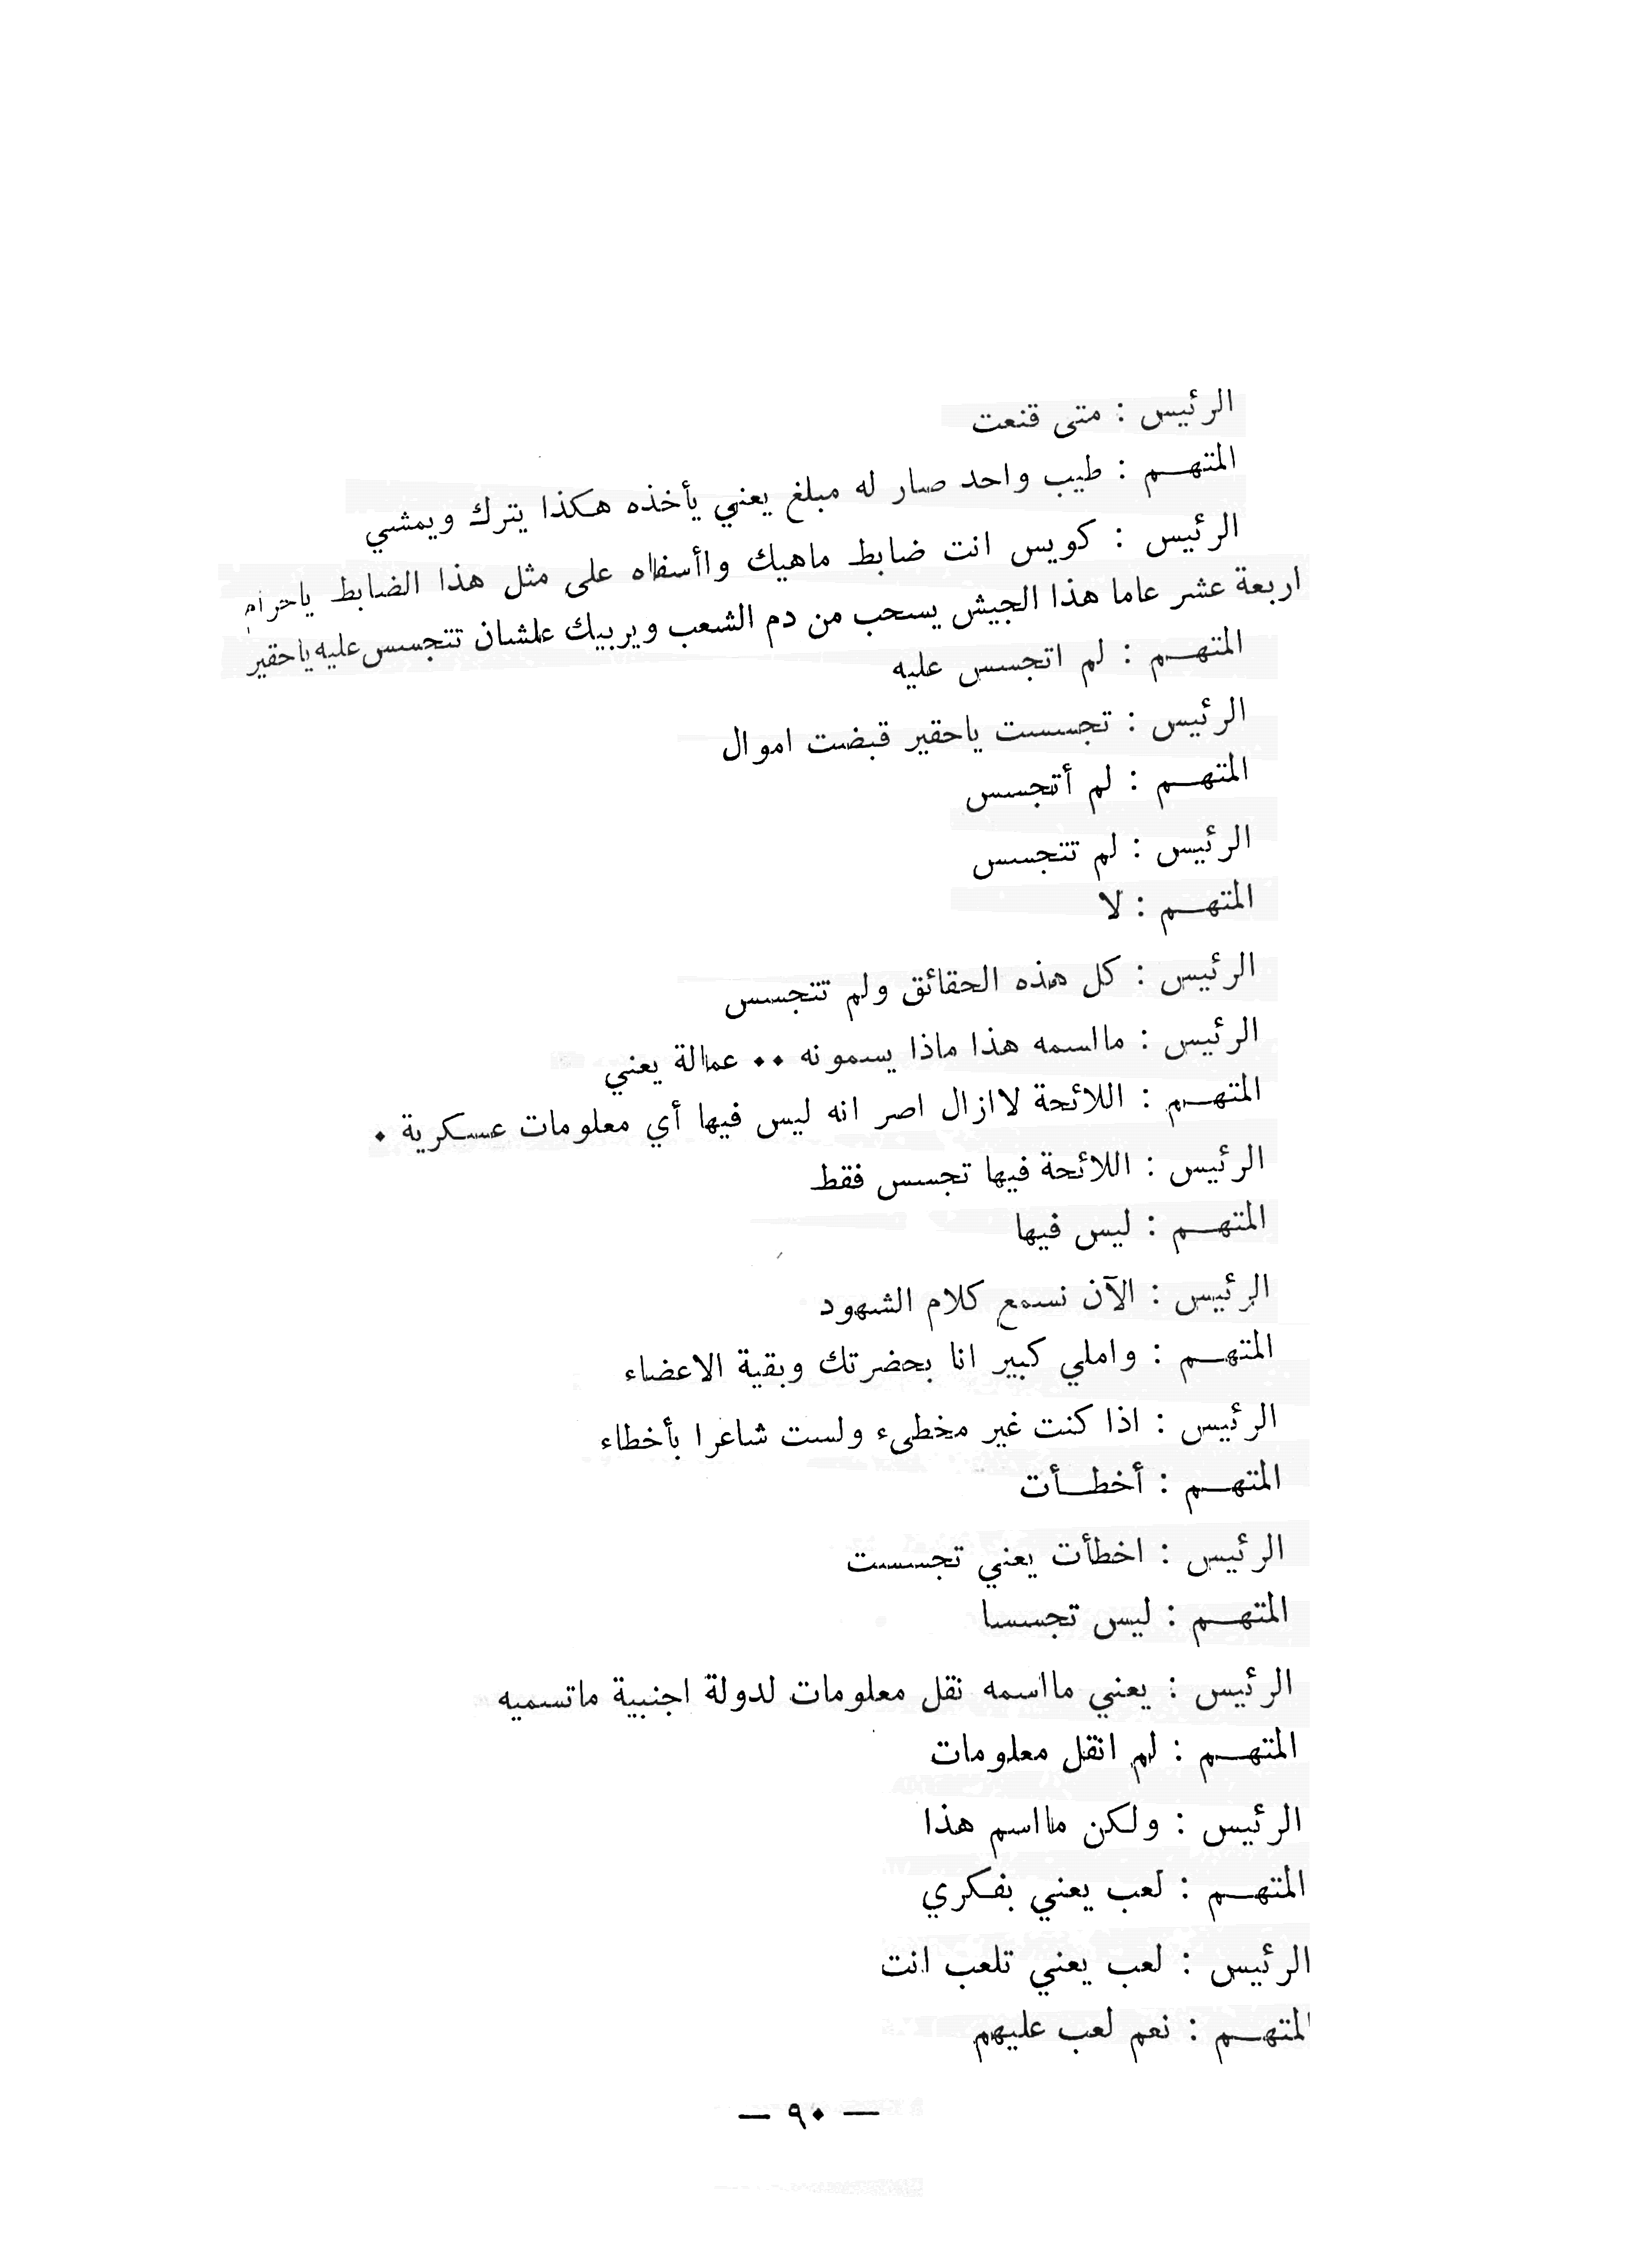 الرئيس : متى قنعت
المتهـــم : طيب واحد صار له مبلغ يعني يأخذه هكذا يترك ويمشي
الرئيس : كويس انت ضابط ماهيك واأسفاه على مثل هذا الضابط ياحرام
اربعة عشر عاما هذا الجيش يسحب من دم الشعب ويربيك علشان تتجسس عليه ياحقير
المتهـــم : لم اتجسس عليه
الرئيس : تجسست ياحقير قبضت اموال
المتهـــم : لم أتجسس
الرئيس : لم تتجسس
المتهـــم : لا
الرئيس : كل هذه الحقائق ولم تتجسس
الرئيس : مااسمه هذا ماذا يسمونه ٠٠ عمالة يعني
المتهـــم : اللائحة لاازال اصر انه ليس فيها أي معلومات عسكرية ٠
الرئيس : اللائحة فيها تجسس فقط
المتهـــم : ليس فيها
الرئيس : الآن نسمع كلام الشهود
المتهـــم : واملي كبير انا بحضرتك وبقية الاعضاء
الرئيس : اذا كنت غير مخطىء ولست شاعرا بأخطاء
المتهـــم : أخطـــأت
الرئيس : اخطأت يعني تجسست
المتهـــم : ليس تجسسا
الرئيس : يعني مااسمه نقل معلومات لدولة اجنبية ماتسميه
المتهـــم : لم انقل معلومات
الرئيس : ولكن مااسم هذا
المتهـــم : لعب يعني بفكري
الرئيس : لعب يعني تلعب انت
المتهـــم : نعم لعب عليهم
— ٩٠ —